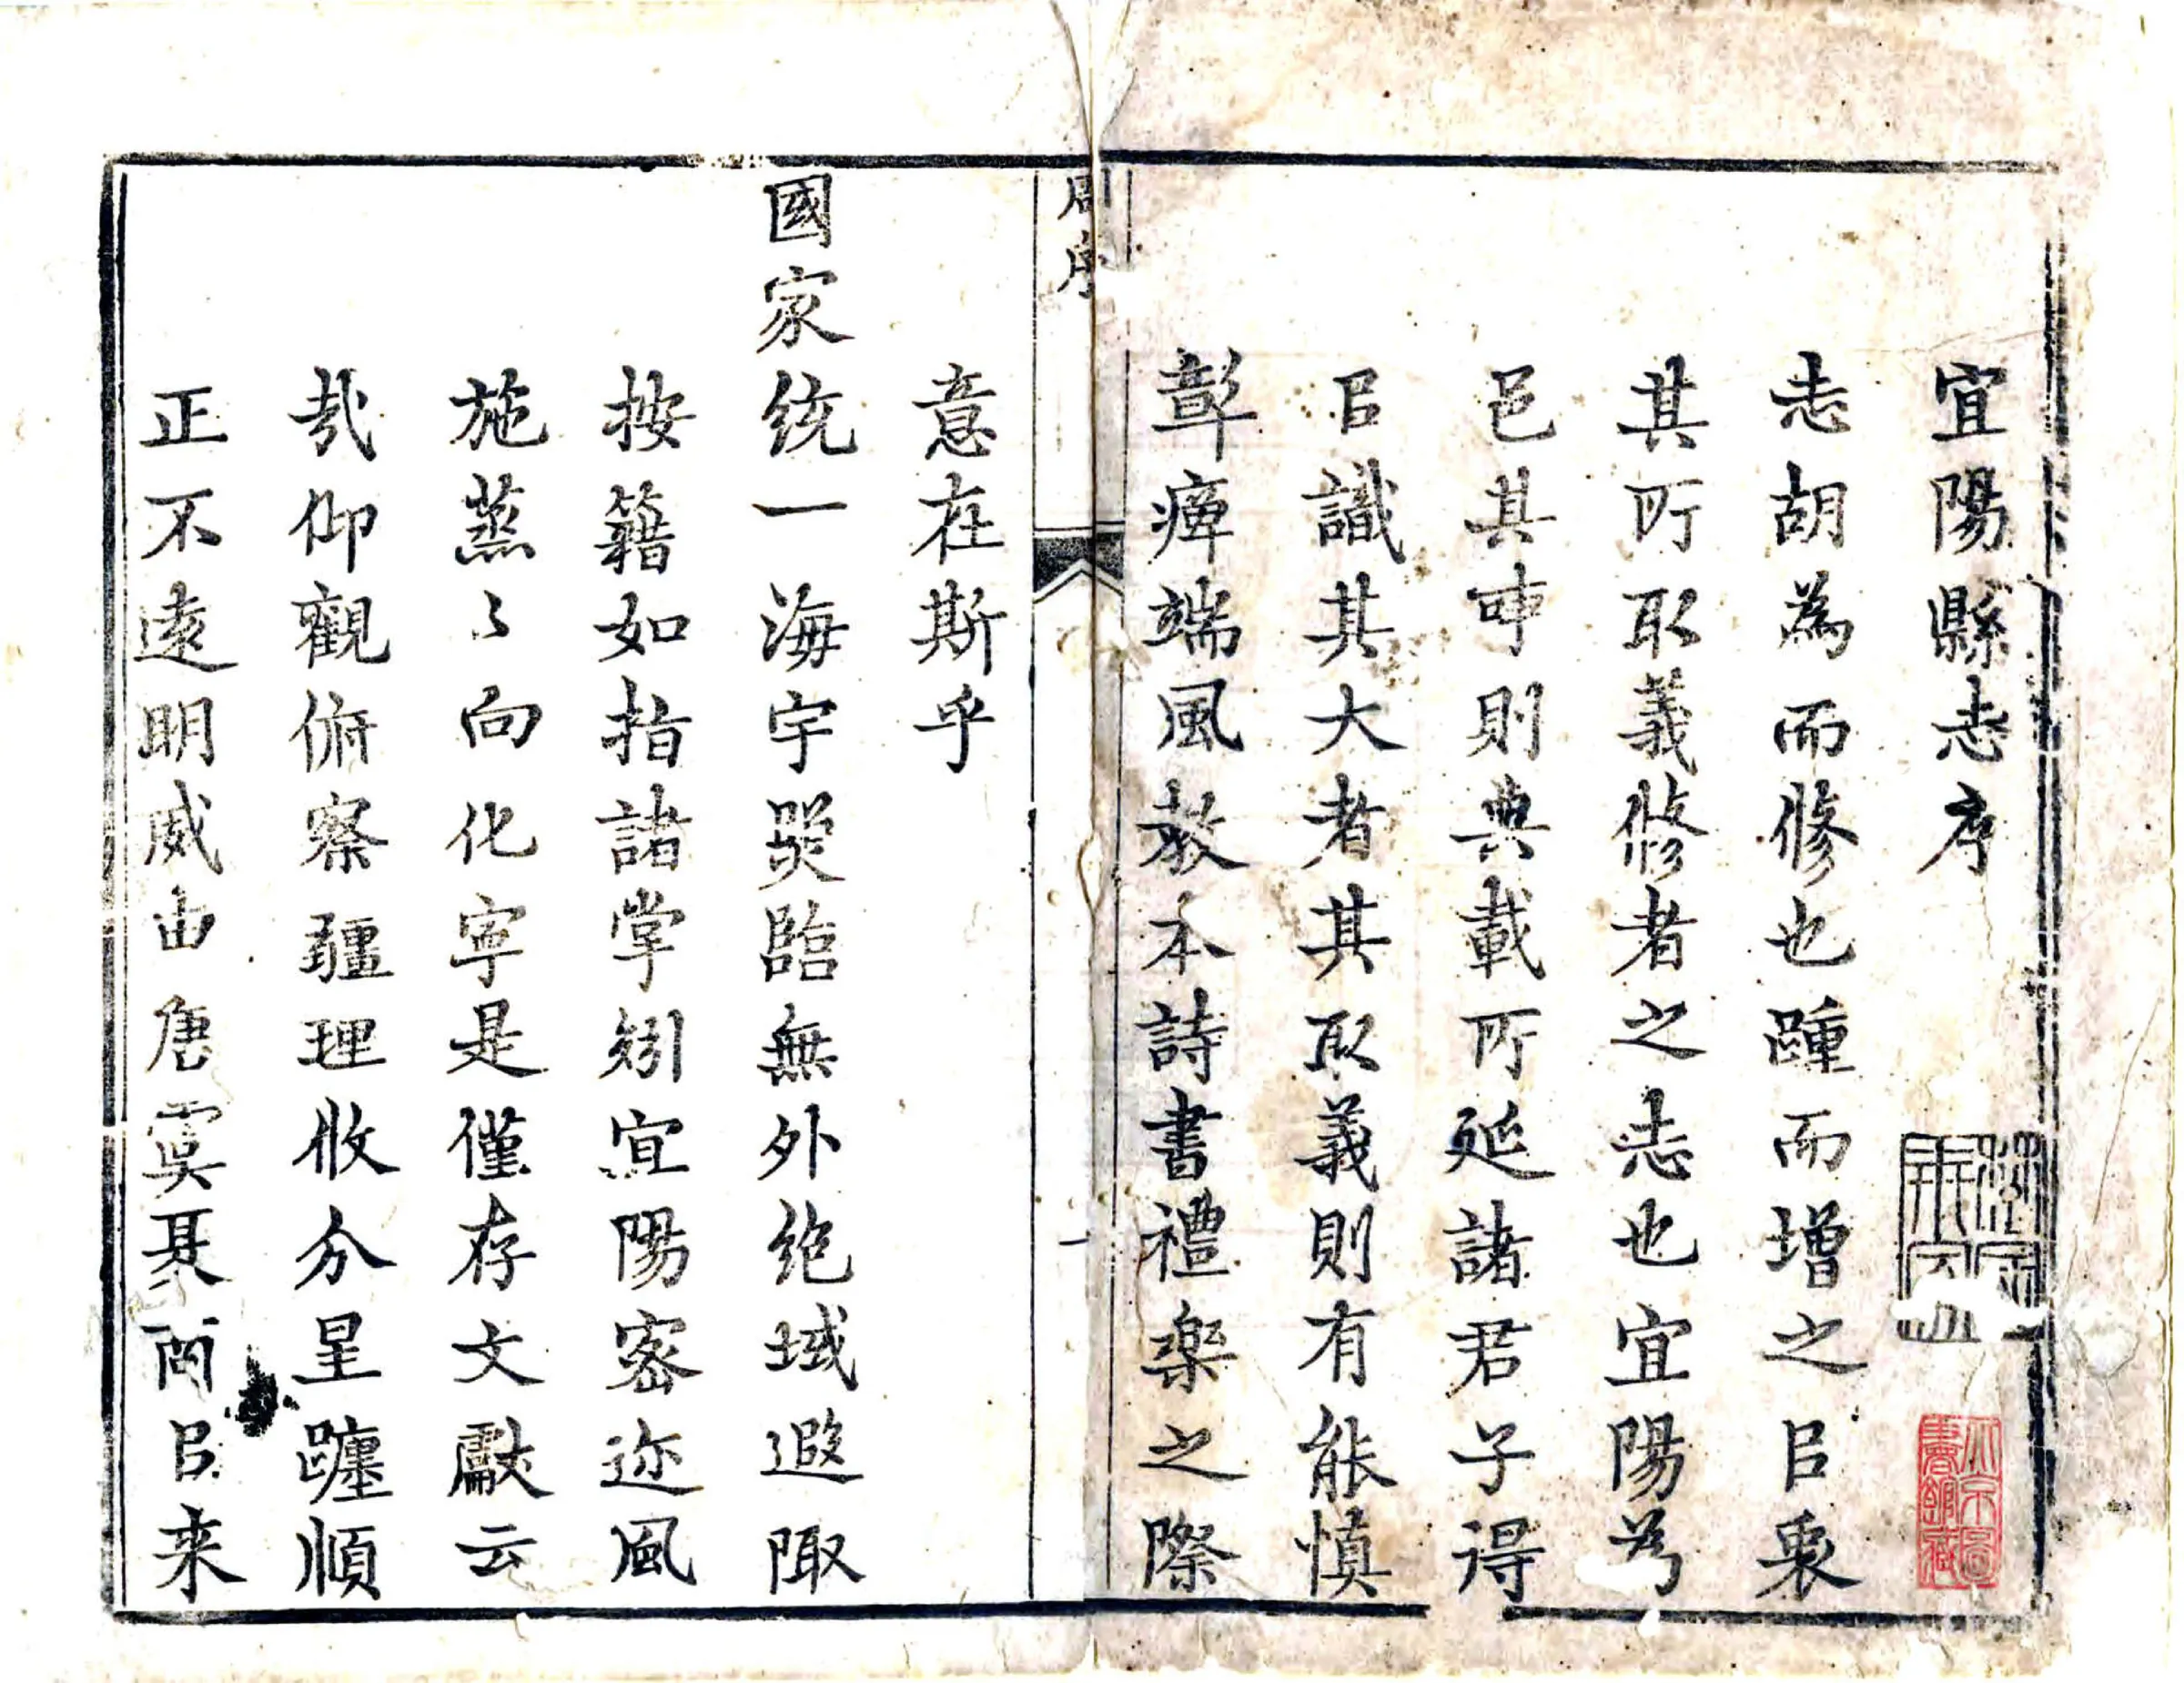 宜陽縣志序
北京圖書館藏
志胡為而修也踵而增之㠯衷
其所取義修者之志也宜陽為
邑其事則典載所延諸君子得
㠯識其大者其取義則有能慎
彰癉端風教本詩書禮樂之際
周序
一
意在斯乎
國家統一海宇照臨無外絶域遐陬
按籍如指諸掌矧宜陽密迩風
施蒸々向化寧是僅存文獻云
哉仰觀俯察疆理攸分星躔順
正不遠明威由唐虞夏商㠯来